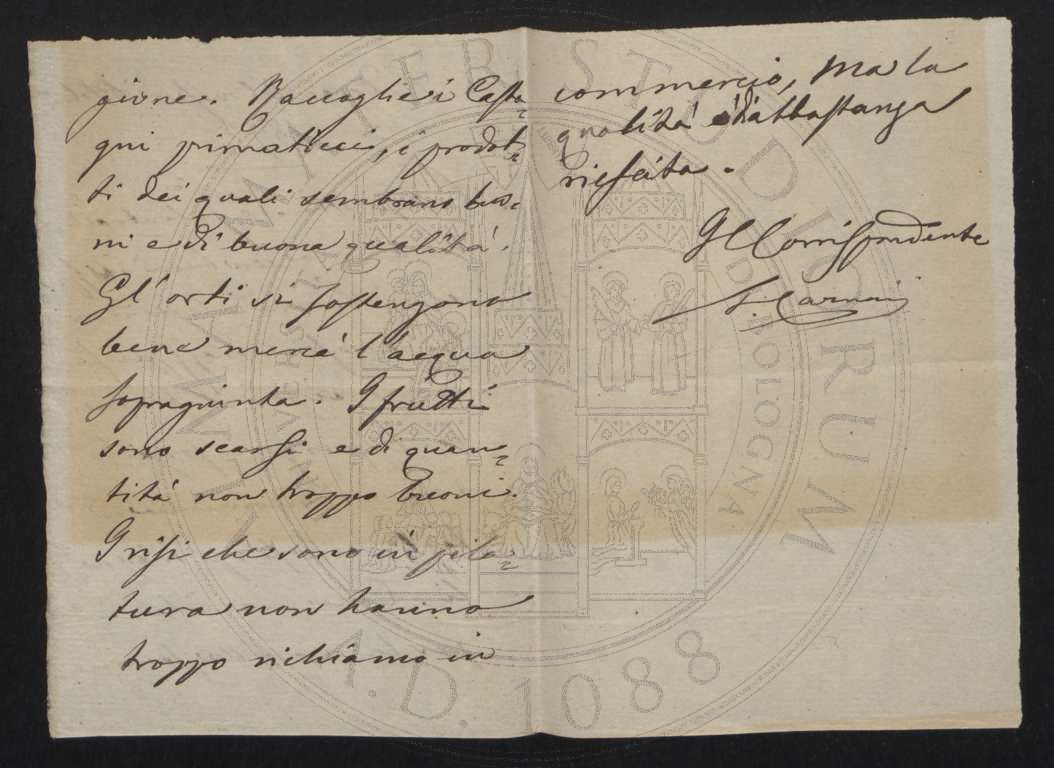 gione. Raccoglie i Casta=
gni primaticci, i prodot=
ti dei quali sembrano buo=
ni e di buona qualitá.
Gl'orti si sostengono
bene mercé l'acqua
sopragiunta. I frutti
sono scarsi e di quan=
titá non troppo buoni.
I risi che sono in pila=
tura non hanno
troppo richiamo in
commercio, ma la
qualitá é d'abbastanza
riescita.
Il Corrispondente
ALMA MATER STUDIORUM
UNIVERSITÀ DI BOLOGNA
A.D. 1088